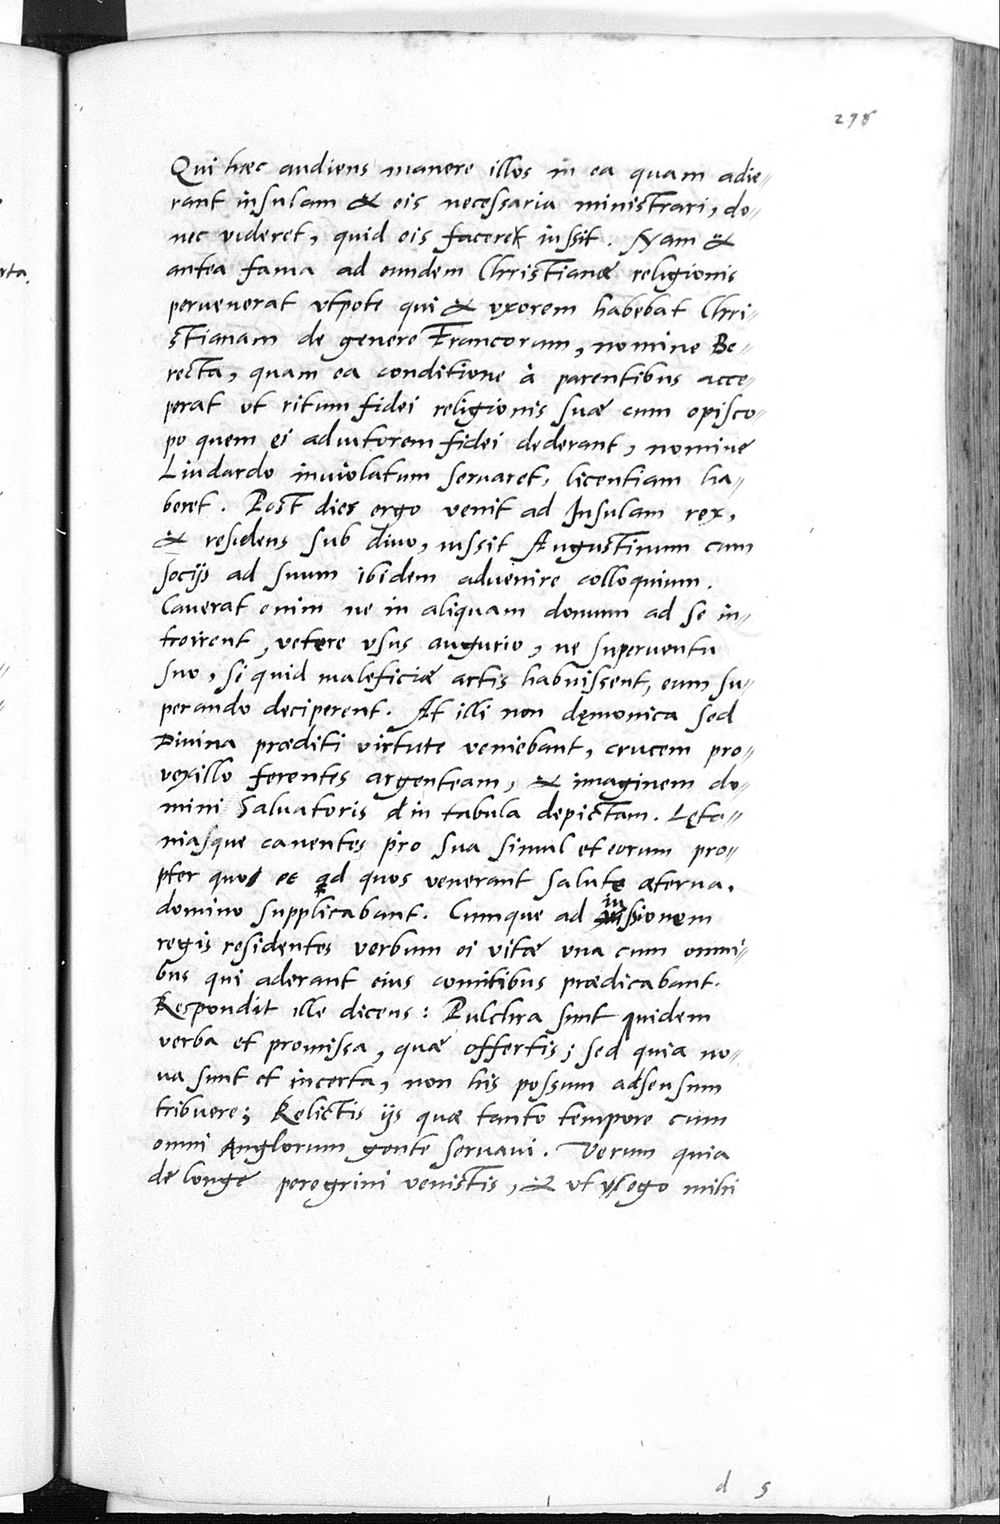 298
Qui hæc audiens manere illos in ea quam adie-
rant insulam & eis necessaria ministrari, do-
nec videret, quid eis faceret iussit. Nam &
antea fama ad eundem Christianæ religionis
pervenerat utpote qui & uxorem habebat Chri-
stianam de genere Francorum, nomine Be-
recta, quam ea conditione à parentibus acce-
perat ut ritum fidei religionis suæ cum episco-
po quem ei adiutorem fidei dederant, nomine
Liudardo inviolatum servaret, licentiam ha-
beret. Post dies ergo venit ad Insulam rex,
& residens sub divo, iussit Augustinum cum
socijs ad suum ibidem advenire colloquium.
Caverat enim ne in aliquam domum ad se in-
troirent, vetere usus augurio, ne superventu
suo, si quid maleficiæ artis habuissent, eum su-
perando deciperent. At illi non dęmonica sed
Divina præditi virtute veniebant, crucem pro
vexillo ferentes argenteam, & imaginem do-
mini Salvatoris in tabula depictam. Lęta-
niasque canentes pro sua simul et eorum pro-
pter quos et ad quos venerant salute æterna.
domino supplicabant. Cumque ad iussionem
regis residentes verbum ei vitæ una cum omni-
bus qui aderant eius comitibus prædicabant.
Respondit ille dicens: Pulchra sunt quidem
verba et promissa, quæ offertis; sed quia no-
va sunt et incerta, non his possum adsensum
tribuere; Relictis ijs quæ tanto tempore cum
omni Anglorum gente servavi. Verum quia
de longe peregrini venistis, & ut ego mihi
d 5
rta.